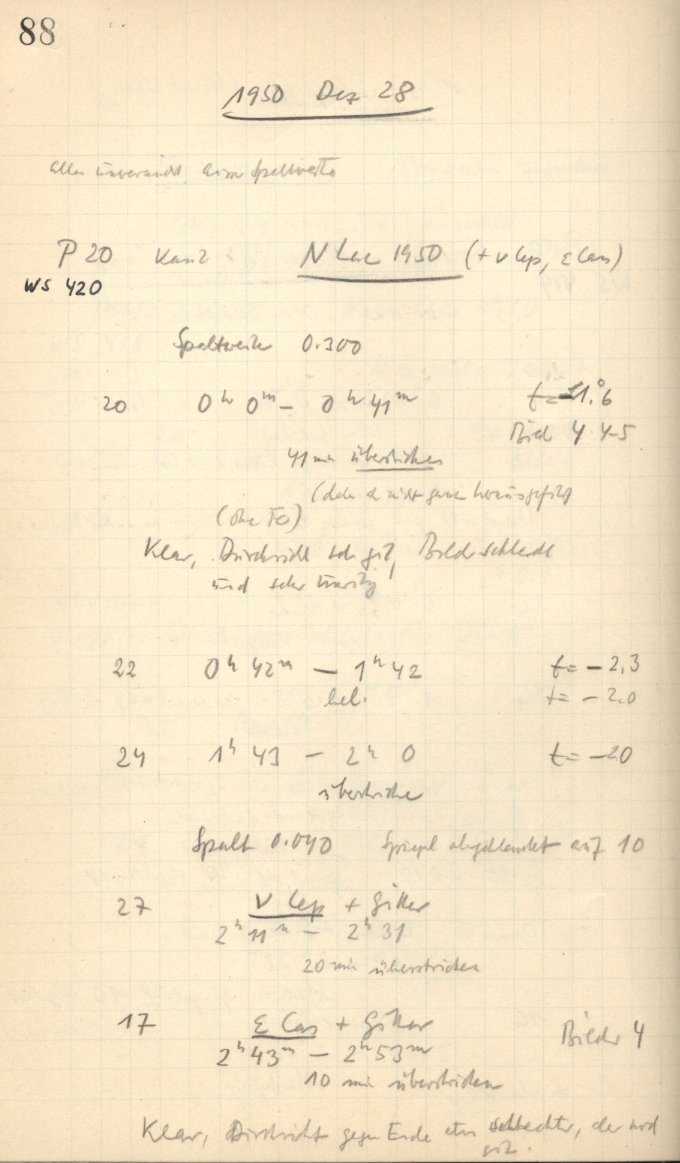 88
1950 Dez 28
alles unverändt. ausser Spaltweite
P 20 N Lac 1950 (+ ν Lep, ε Cas)
WS 420
Spaltweite 0.300
20 0ʰ 0ᵐ – 0ʰ 41ᵐ t = 1.°6
Bild 4 4-5
41 min überstrichen
nicht ganz herausgeführt
(ohne
Klar, Durchsicht sehr gut, Bilder schlecht
und sehr unruhig
22 0ʰ 42ᵐ – 1ʰ 42 t = – 2.3
bel. t = – 2.0
24 1ʰ 43 – 2ʰ 0 t = –2.0
überstrichen
Spalt 0.040 Spiegel abgeblendet auf 10
27 ν Lep + Gitter
2ʰ 11ᵐ – 2ʰ 31
20 min überstrichen
17 ε Cas + Gitter
2ʰ 43ᵐ – 2ʰ 53ᵐ Bilder 4
10 min überstrichen
Klar, Durchsicht gegen Ende etwas schlechter, aber noch
gut.